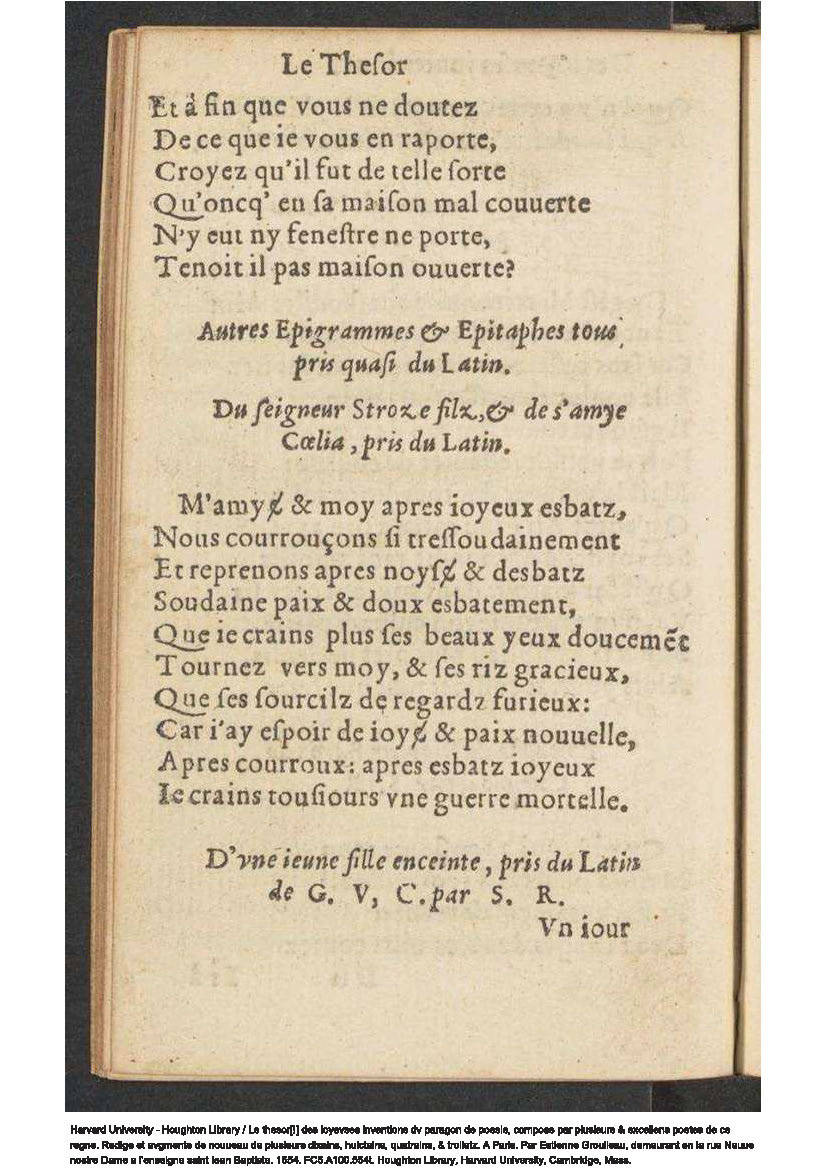 Le Theſor
Et à fin que vous ne doutez
De ce que ie vous en raporte,
Croyez qu'il fut de telle ſorte
Qu'oncq' en ſa maiſon mal couuerte
N'y eut ny feneſtre ne porte,
Tenoit il pas maiſon ouuerte?
Autres Epigrammes & Epitaphes tous
pris quaſi du Latin.
Du ſeigneur Stroze filz, & de s'amye
Cœlia, pris du Latin.
M'amyɇ & moy apres ioyeux esbatz,
Nous courrouçons ſi treſſoudainement
Et reprenons apres noyſɇ & desbatz
Soudaine paix & doux esbatement,
Que ie crains plus ſes beaux yeux doucemẽt
Tournez vers moy, & ſes riz gracieux,
Que ſes ſourcilz de regardz furieux:
Car i'ay eſpoir de ioyɇ & paix nouuelle,
Apres courroux: apres esbatz ioyeux
Ie crains touſiours vne guerre mortelle.
D'vne ieune fille enceinte, pris du Latin
de G. V, C. par S. R.
Vn iour
Harvard University - Houghton Library / Le thesor[!] des ioyevses inventions dv paragon de poesie, compose par plusieurs & excellens poetes de ce
regne. Redige et avgmente de nouueau de plusieurs dixains, huictains, quatrains, & trolletz. A Paris. Par Estienne Groulleau, demeurant en la rue Neuue
nostre Dame a l'enseigne saint Iean Baptiste. 1554. FC5.A100.554t. Houghton Library, Harvard University, Cambridge, Mass.